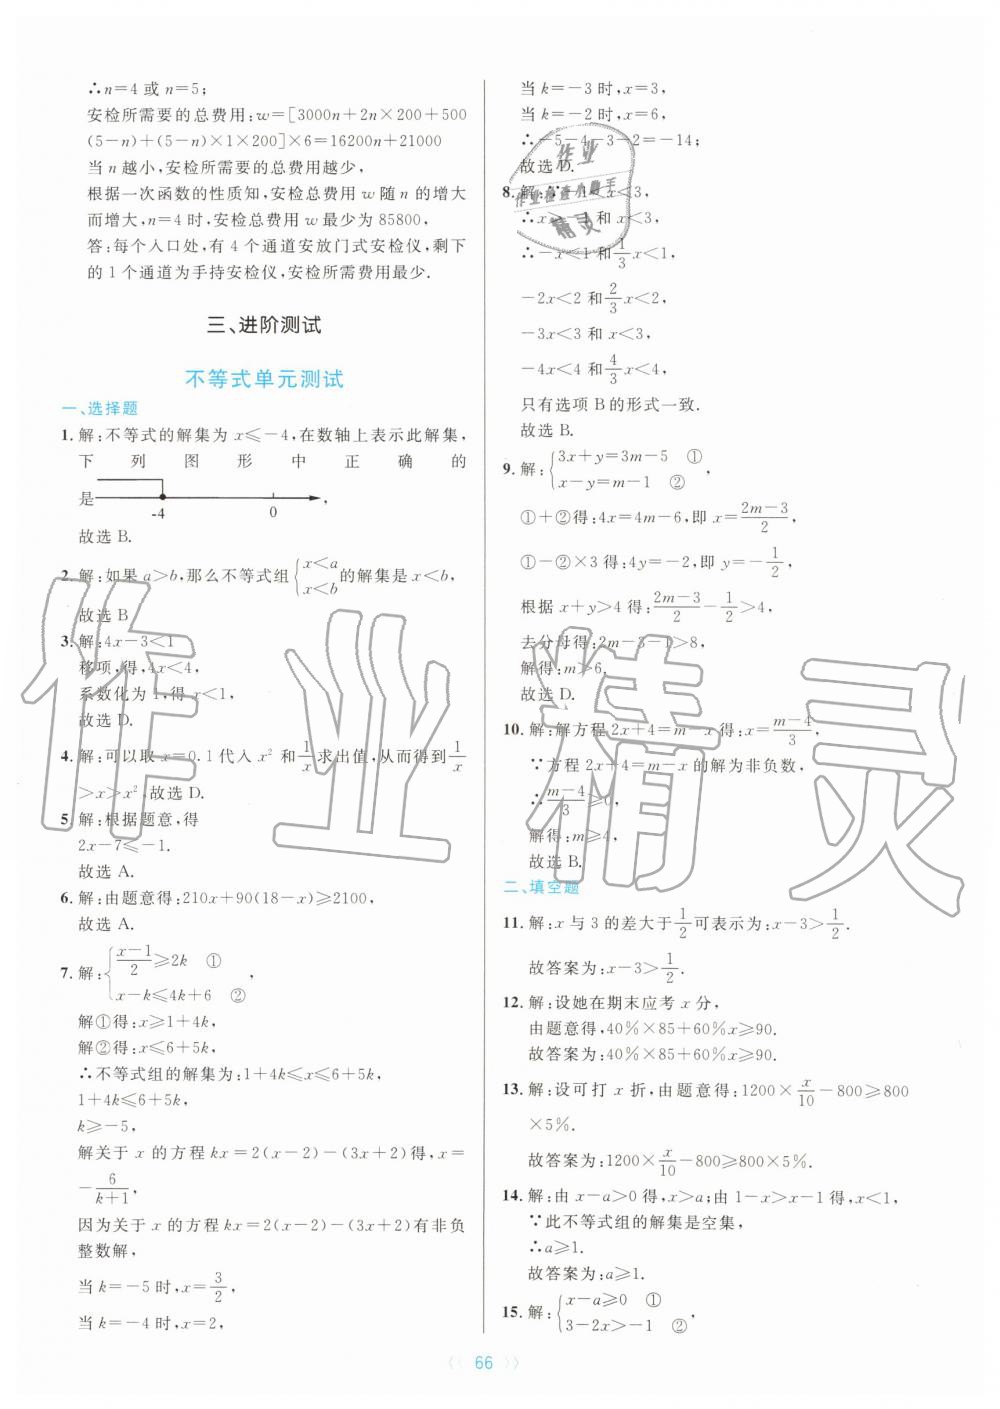 ∴n=4 或 n=5;
安检所需要的总费用:w=[3000n+2n×200+500
(5-n)+(5-n)×1×200]×6=16200n+21000
当 n越小,安检所需要的总费用越少,
根据一次函数的性质知,安检总费用 w 随 n 的增大
而增大,n=4 时,安检总费用 w 最少为 85800,
答:每个入口处,有 4 个通道安放门式安检仪,剩下
的 1 个通道为手持安检仪,安检所需费用最少.
三、进阶测试
不等式单元测试
一、选择题
1. 解:不等式的解集为 x≤-4,在数轴上表示此解集,
下列图形中正确的
是 -4 0 ,
故选 B.
2. 解:如果 a>b,那么不等式组{x<a x<b 的解集是 x<b,
故选 B
3. 解:4x-3<1
移项,得,4x<4,
系数化为 1,得 x<1,
故选 D.
4. 解:可以取 x=0.1 代入 x² 和 1/x 求出值,从而得到 1/x
>x>x².故选 D.
5. 解:根据题意,得
2x-7≤-1.
故选 A.
6. 解:由题意得:210x+90(18-x)≥2100,
故选 A.
7. 解:{(x-1)/2≥2k ① x-k≤4k+6 ② ,
解①得:x≥1+4k,
解②得:x≤6+5k,
∴不等式组的解集为:1+4k≤x≤6+5k,
1+4k≤6+5k,
k≥-5,
解关于 x 的方程 kx=2(x-2)-(3x+2)得,x=
-6/(k+1),
因为关于 x 的方程 kx=2(x-2)-(3x+2)有非负
整数解,
当 k=-5 时,x=3/2,
当 k=-4 时,x=2,
当 k=-3 时,x=3,
当 k=-2 时,x=6,
∴-5-4-3-2=-14;
故选 D.
8. 解:∵-1<x<3,
∴x>-1 和 x<3,
∴-x<1 和 1/3 x<1,
-2x<2 和 2/3 x<2,
-3x<3 和 x<3,
-4x<4 和 4/3 x<4,
只有选项 B 的形式一致.
故选 B.
9. 解:{3x+y=3m-5 ① x-y=m-1 ② ,
①+②得:4x=4m-6,即 x=(2m-3)/2,
①-②×3 得:4y=-2,即 y=-1/2,
根据 x+y>4 得:(2m-3)/2-1/2>4,
去分母得:2m-3-1>8,
解得:m>6,
故选 D.
10. 解:解方程 2x+4=m-x 得:x=(m-4)/3,
∵方程 2x+4=m-x 的解为非负数,
∴(m-4)/3≥0,
解得:m≥4,
故选 B.
二、填空题
11. 解:x 与 3 的差大于 1/2 可表示为:x-3>1/2.
故答案为:x-3>1/2.
12. 解:设她在期末应考 x 分,
由题意得,40%×85+60%x≥90.
故答案为:40%×85+60%x≥90.
13. 解:设可打 x 折,由题意得:1200×x/10-800≥800
×5%.
故答案为:1200×x/10-800≥800×5%.
14. 解:由 x-a>0 得,x>a;由 1-x>x-1 得,x<1,
∵此不等式组的解集是空集,
∴a≥1.
故答案为:a≥1.
15. 解:{x-a≥0 ① 3-2x>-1 ② ,
66
作业
作业检查小助手
精灵
作业精灵